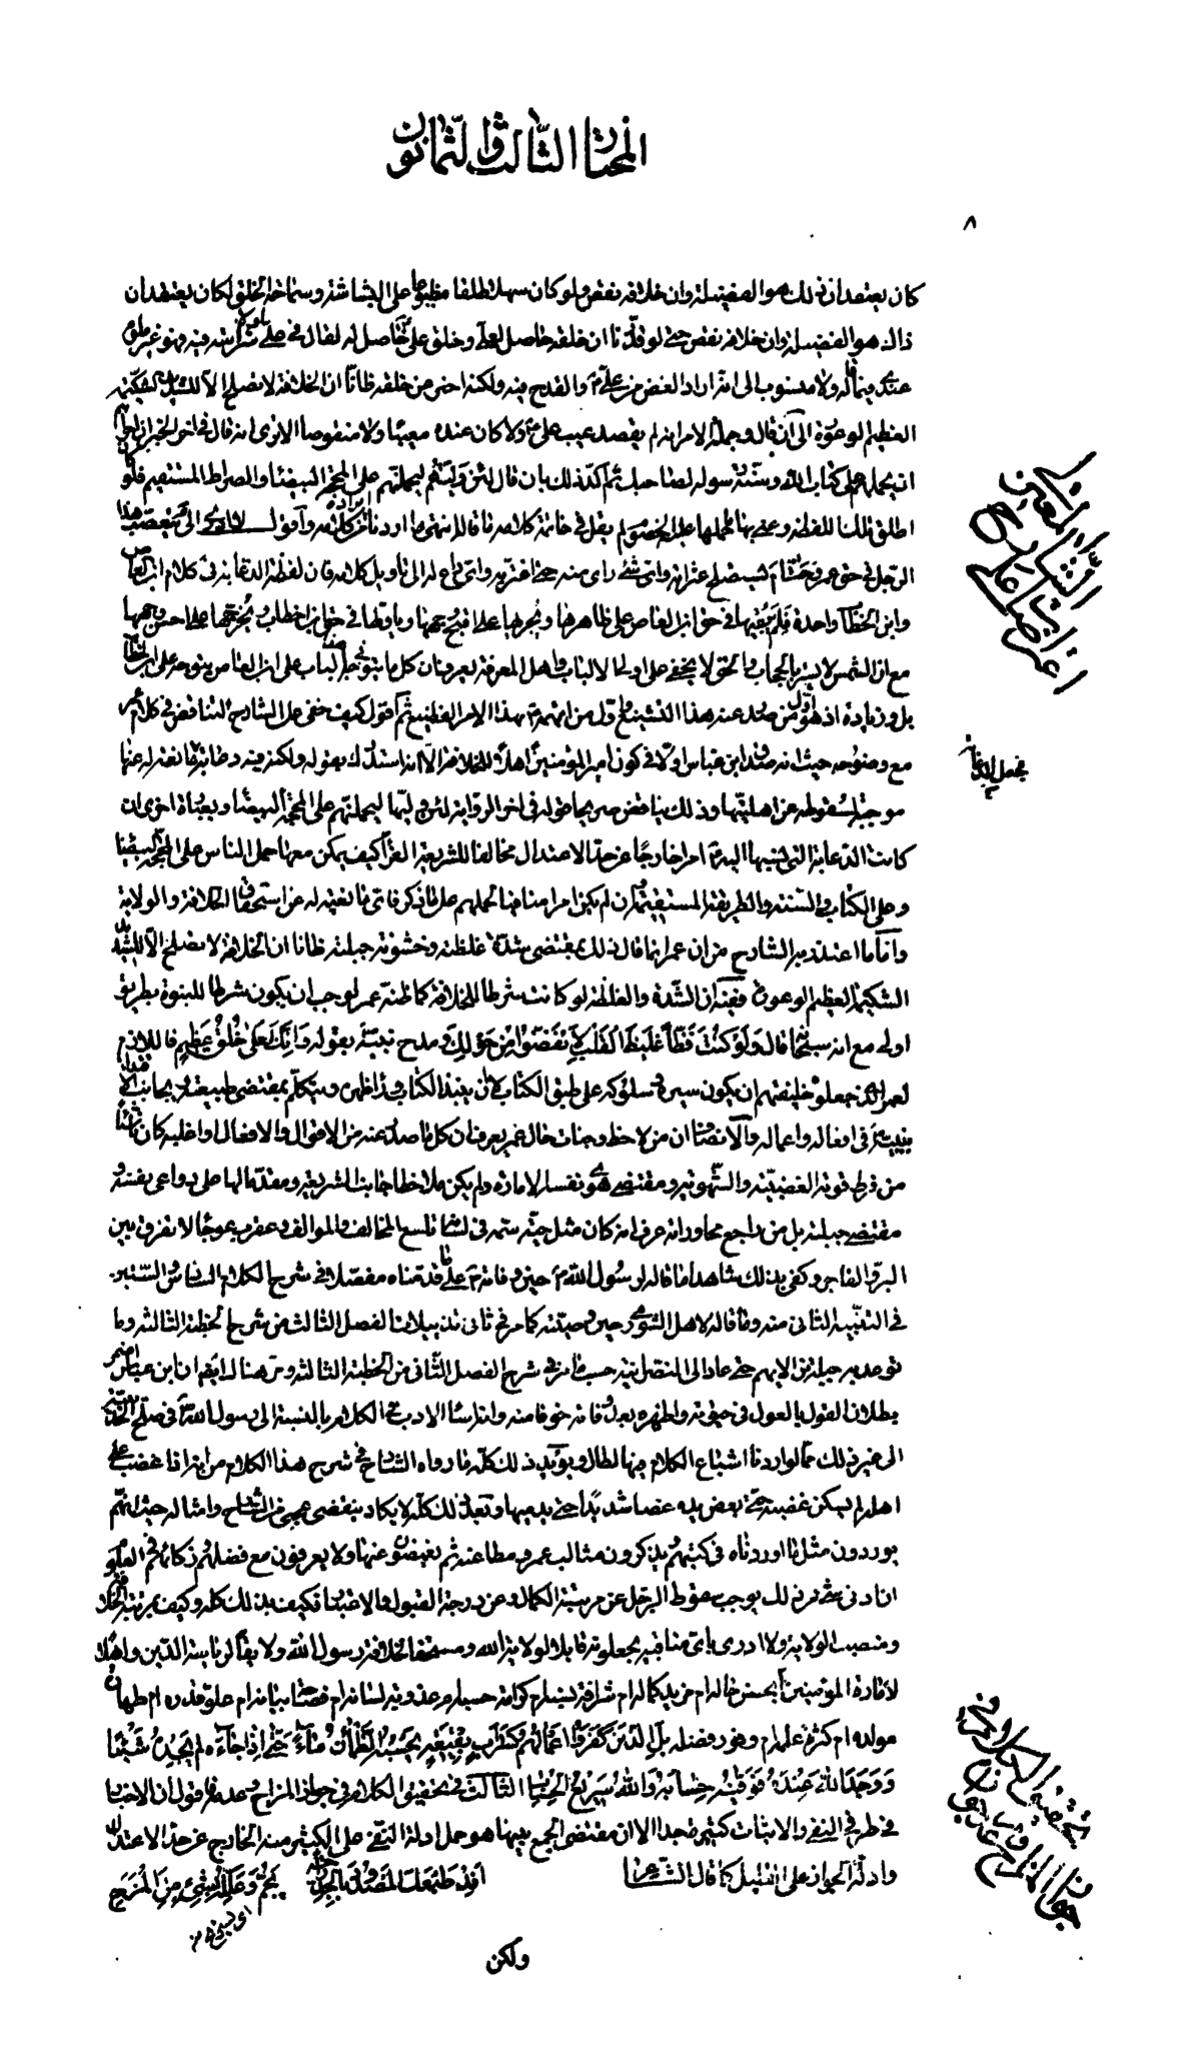 المختار الثالث والثمانون
٨
كان يعتقد ان ذلك هو الفضيلة وان خلافه نقص ولو كان سهلا طلقا مطبوعا على البشاشة وسماحة الخلق لكان يعتقد ان
ذاك هو الفضيلة وان خلافه نقص حتى لو قدرنا ان خلقه حاصل لعلي وخلق علي حاصل له لقال في علي لولا شراسة فيه فهو غير ملوم
عندي فيما قاله ولا منسوب الى انه اراد الغض من علي والقدح فيه ولكنه اخبر عن خلقه ظانا ان الخلافة لا تصلح الا لشديد الشكيمة
العظيم الوعورة الى ان قال وجملة الامر انه لم يقصد عيب علي ولا كان عنده معيبا ولا منقوصا الا ترى انه قال في اخر الخبر ان احراهم
ان يحملهم على كتاب الله وسنة رسوله لصاحبك ثم اكد ذلك بان قال لئن وليتهم ليحملنهم على المحجة البيضاء والصراط المستقيم فلو كان
اطلق تلك اللفظة وعنى بها ما حملها عليه الخصوم لم يقل في خاتمة كلامه ما قاله انتهى ما اردنا ايراده من كلامه واقول لا ادري الى م يتعصب هذا
الرجل في حق عمر وحتام يصلح عثراته واي شيء راى منه حتى اغتر به واي داع له الى تاويل كلامه فان لفظة الدعابة في كلام ابن العاص
وابن الخطاب واحدة فلم يبقيها في حق ابن العاص على ظاهرها ويجريها على اقبح وجهها وياولها في حق ابن خطاب ويخرجها على احسن وجهها
مع ان الشمس لا يستر بالحجاب والحق لا يخفى على اولى الالباب واهل المعرفة يعرفون ان كل ما يتوجه في هذا الباب على ابن العاص يتوجه على ابن الخطاب
بل وزيادة اذ هو اول من صدر عنه هذا التشنيع واول من اتهمه بهذا الامر الفظيع ثم اقول كيف خفى على الشارح التناقض في كلام عمر
مع وضوحه حيث انه صدق ابن عباس اولا في كون امير المؤمنين اهلا للخلافة الا انه استدرك بقوله ولكنه فيه دعابة فجعل الدعابة مانعة له عنها
موجبة لسقوطه عن اهليتها وذلك يناقض صريحا قوله في اخر الرواية لئن وليها ليحملنهم على المحجة البيضاء وبعبارة اخرى ان
كانت الدعابة التي نسبها اليه امرا خارجا عن حد الاعتدال مخالفا للشريعة الغراء كيف يمكن معها حمل الناس على المحجة البيضاء
وعلى الكتاب والسنة والطريقة المستقيمة وان لم يكن امرا منافيا لحملهم على ما ذكر فاي مانعية له عن استحقاق الخلافة والولاية
واما ما اعتذر به الشارح من ان عمر انما قال ذلك بمقتضى شدة غلظته وخشونة جبلته ظانا ان الخلافة لا تصلح الا للشديد
الشكيمة العظيم الوعورة ففيه ان الشدة والغلظة لو كانت شرطا للخلافة كما ظنه عمر لوجب ان يكون شرطا للنبوة بطريق
اولى مع انه سبحانه قال ولو كنت فظا غليظ القلب لانفضوا من حولك ومدح نبيه بقوله وانك لعلى خلق عظيم فاللازم
لعمر الذي جعلوه خليفتهم ان يكون سيره وسلوكه على طبق الكتاب لا ان ينبذ الكتاب وراء ظهره ويتكلم بمقتضى طبيعته ويجانب الاقتداء
بنبيه في افعاله واعماله والانصاف ان من لاحظ وجنات حال عمر يعرف ان كل ما صدر عنه من الاقوال والافعال او اغلبه كان ناشئا
من فرط قوته الغضبية والشهوية ومقتضى هوى نفسه الامارة ولم يكن ملاحظا جانب الشريعة ومقدما لها على دواعي نفسه و
مقتضى جبلته بل من راجع محاوراته عرف انه كان مثل حية سمة في لسانه تلسع المخالف والموالف وعقرب عوجاء لا تفرق بين
البر والفاجر وكفى بذلك شاهدا ما قاله لرسول الله حين وفاته على ما قدمناه مفصلا في شرح الكلام السادس والستين
في التنبيه الثاني منه وما قاله لاهل الشورى حين وصيته كما مر في ثاني تذييلات الفصل الثالث من شرح الخطبة الثالثة وما
توعد به جبلة بن الايهم حتى عاد الى النصرانية حسب ما مر في شرح الفصل الثاني من الخطبة الثالثة ومر هناك ايضا ان ابن عباس اضمر
بطلان القول بالعول في حيوته واظهره بعد وفاته خوفا منه واساء الادب في الكلام بالنسبة الى رسول الله في صلح الحديبية
الى غير ذلك مما لو اردنا اشباع الكلام فيها لطال ويؤيد ذلك كله ما رواه الشارح في شرح هذا الكلام من انه اذا غضب على
اهله لم يسكن غضبه حتى يعض يده عضا شديدا حتى يدميها وبعد ذلك كله لا يكاد ينقضي عجبي من الشارح وامثاله حيث انهم
يوردون مثل ما اوردناه في كتبهم ويذكرون مثالب عمر ومطاعنه ثم يغمضون عنها ولا يعرفون مع فضلهم وذكائهم في العلوم
ان ادنى شيء من ذلك يوجب سقوط الرجل عن مرتبة الكمال وعن درجة القبول والاعتبار فكيف بذلك كله وكيف بمرتبة الخلافة
ومنصب الولاية ولا ادري باي مناقبه يجعلونه قابلا لولاية الله ومستحقا لخلافة رسول الله ولايقا لرياسة الدين واهلا
لامارة المؤمنين ابحسن حاله ام مزيد كماله ام شرافة نسبه ام كرامة حسبه ام عذوبة لسانه ام فصاحة بيانه ام علو قدره ام طهارة
مولده ام كثرة علمه ام وفور فضله بل الذين كفروا اعمالهم كسراب بقيعة يحسبه الظمان ماء حتى اذا جاءه لم يجده شيئا
ووجد الله عنده فوفيه حسابه والله سريع الحساب الثالث في تحقيق الكلام في جواز المزاح وعدمه فاقول ان الاخبار
في طرفي النفي والاثبات كثيرة جدا الا ان مقتضى الجمع بينها هو حمل ادلة النهي على الكثير منه الخارج عن حد الاعتدال
وادلة الجواز على القليل كما قال الشاعر افد طبعك المكدود بالجد راحة يجم وعلله بشيء من المزح
ولكن
اعتراض الشارح على
فجعل الدعابة
تحقيق الكلام في جواز المزاح وعدمه